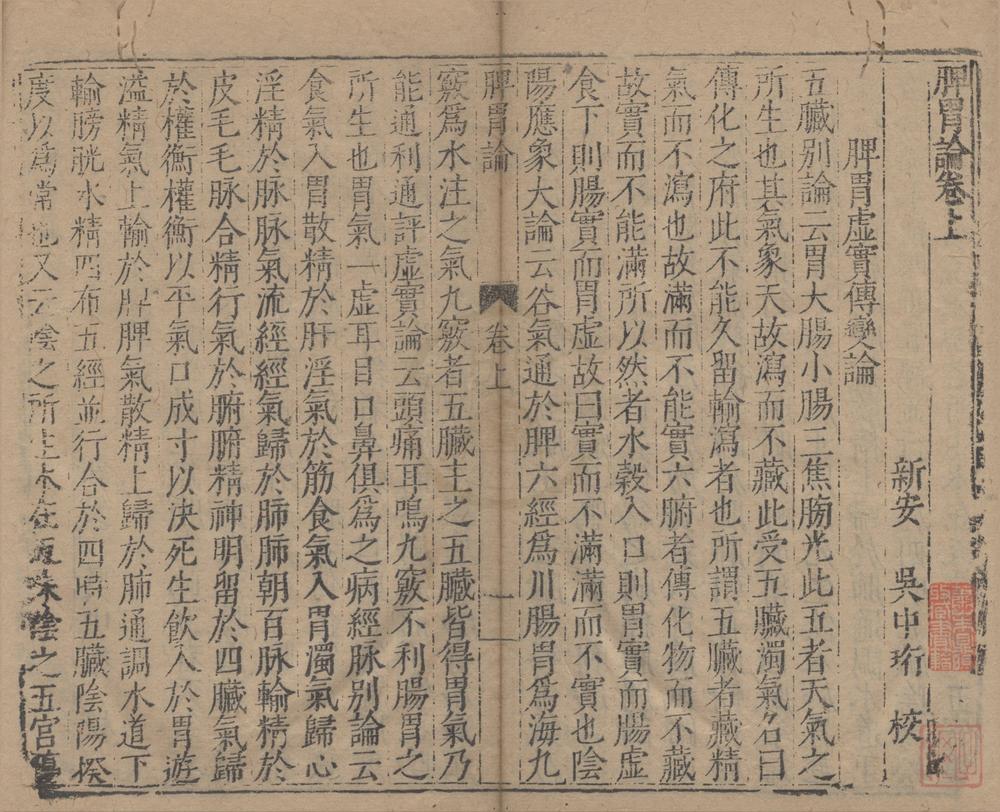 脾胃論卷上
新安 吳中珩 校
脾胃虛實傳變論
五臟別論云胃大腸小腸三焦膀光此五者天氣之
所生也其氣象天故瀉而不藏此受五臟濁氣名曰
傳化之府此不能久留輸瀉者也所謂五臟者藏精
氣而不瀉也故滿而不能實六腑者傳化物而不藏
故實而不能滿所以然者水穀入口則胃實而腸虛
食下則腸實而胃虛故曰實而不滿滿而不實也陰
陽應象大論云谷氣通於脾六經爲川腸胃爲海九
脾胃論 卷上 一
竅爲水注之氣九竅者五臟主之五臟皆得胃氣乃
能通利通評虛實論云頭痛耳鳴九竅不利腸胃之
所生也胃氣一虛耳目口鼻俱爲之病經脉別論云
食氣入胃散精於肝淫氣於筋食氣入胃濁氣歸心
淫精於脉脉氣流經經氣歸於肺肺朝百脉輸精於
皮毛毛脉合精行氣於腑腑精神明留於四臟氣歸
於權衡權衡以平氣口成寸以决死生飲入於胃遊
溢精氣上輸於脾脾氣散精上歸於肺通調水道下
輸膀胱水精四布五經並行合於四時五臟陰陽揆
度以爲常也又云陰之所生本在五味陰之五官